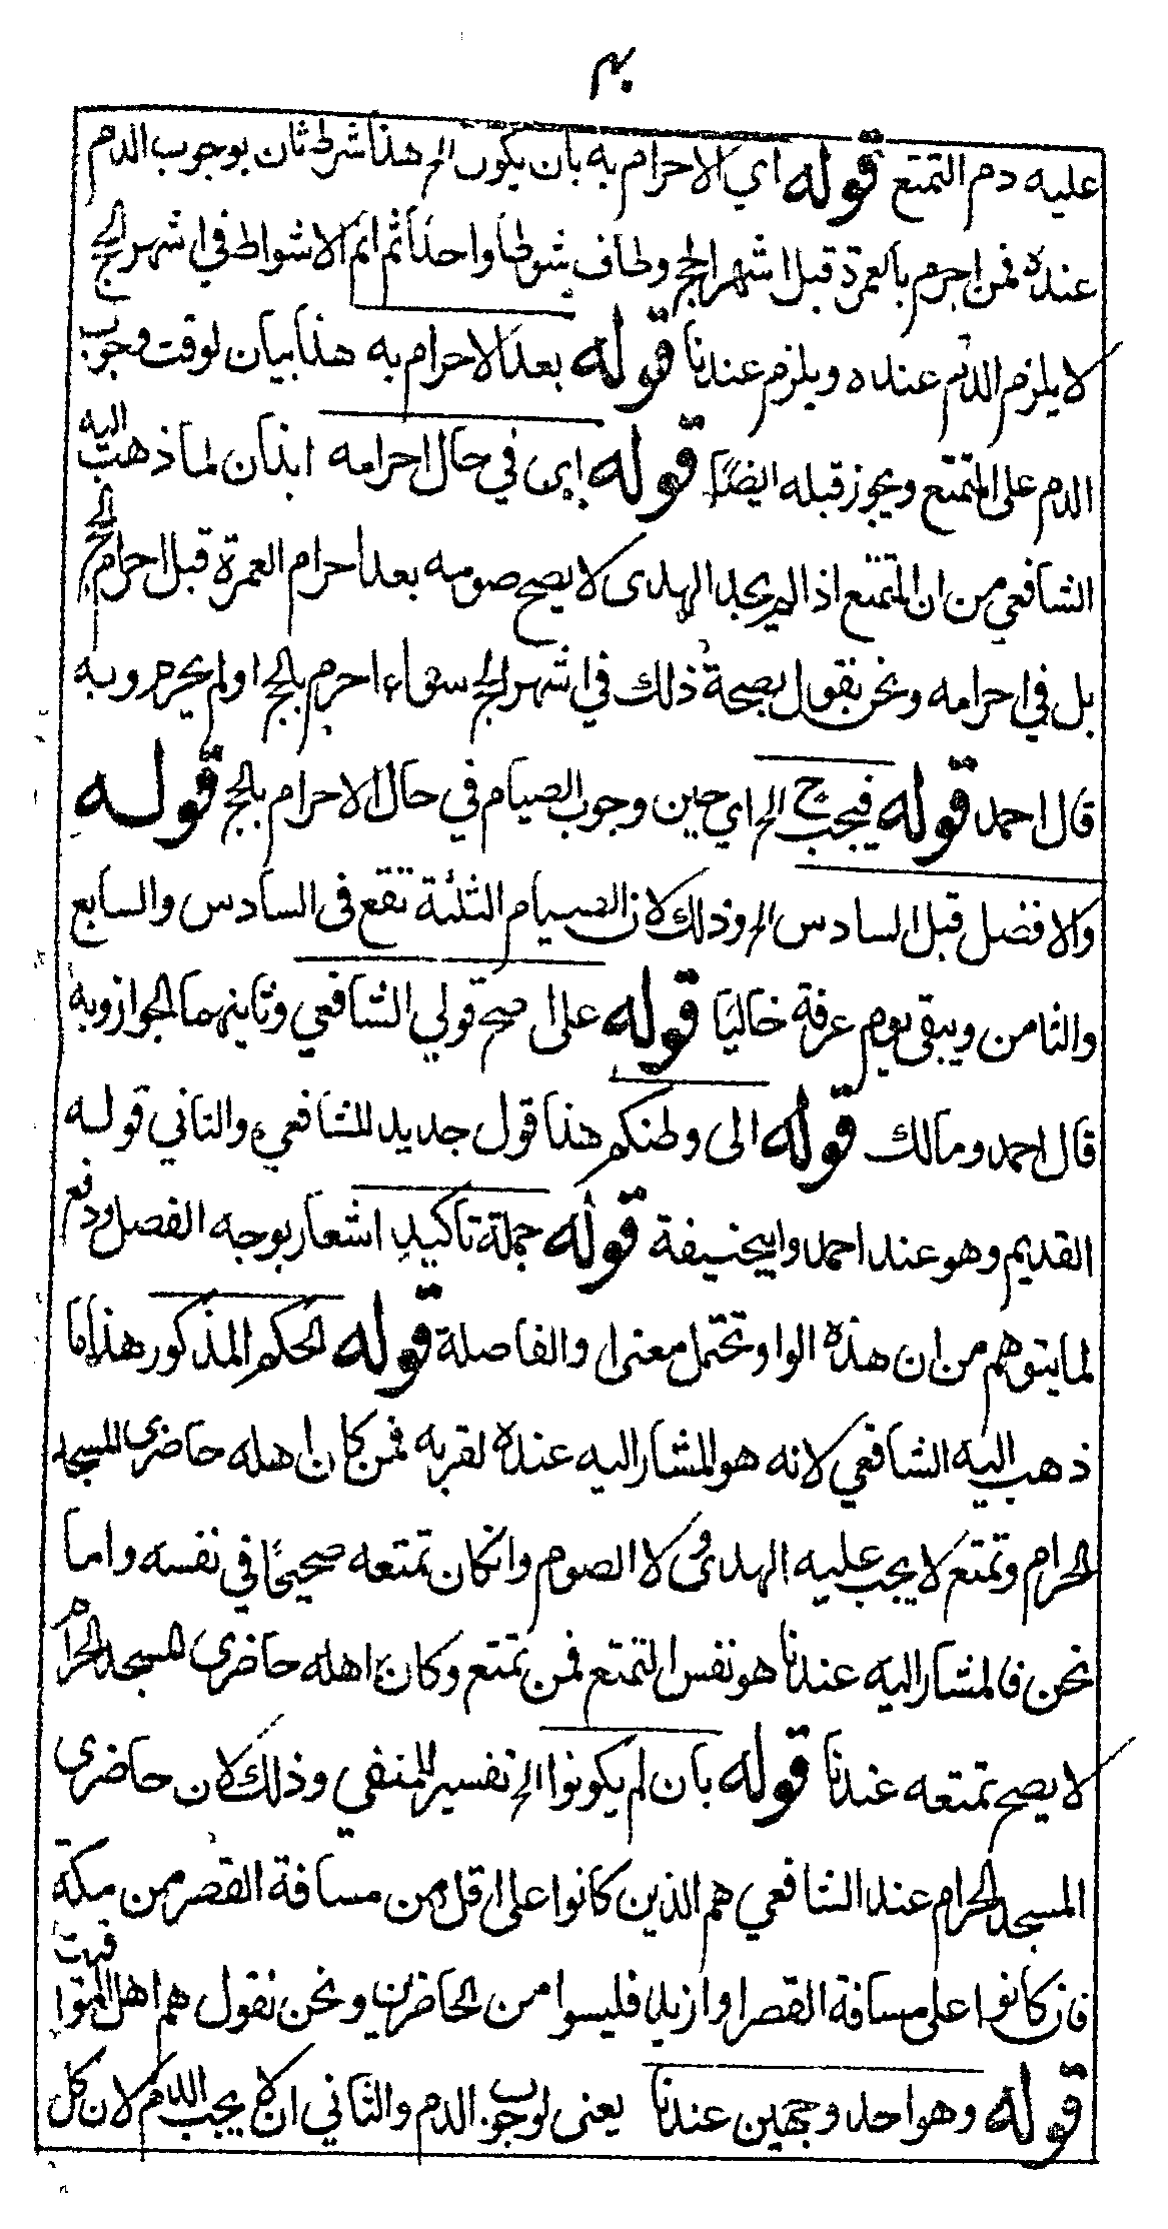 عليه دم التمتع قوله اي الاحرام به بان يكون الخ هذا شرط ثان بوجوب الدم
عنده فمن احرم بالعمرة قبل اشهر الحج وطاف شوطا واحدا ثم اتم الاشواط في اشهر الحج
لا يلزم الدم عنده ويلزم عندنا قوله بعد الاحرام به هذا بيان لوقت وجوب
الدم على المتمتع ويجوز قبله ايضًا قوله اى في حال احرامه ايذان لما ذهب اليه
الشافعي من ان المتمتع اذا لم يجد الهدى لا يصح صومه بعد احرام العمرة قبل احرام الحج
بل في احرامه ونحن نقول بصحة ذلك في اشهر الحج سواء احرم بالحج اولم يحرم وبه
قال احمد قوله فيجب ح الخ اي حين وجوب الصيام في حال الاحرام بالحج قوله
والافضل قبل السادس الخ وذلك لان الصيام الثلثة تقع فى السادس والسابع
والثامن ويبقى يوم عرفة خاليا قوله على اصح قولي الشافعي وثاينهما الجواز وبه
قال احمد ومالك قوله الى وطنكم هذا قول جديد للشافعي والثاني قوله
القديم وهو عند احمد وابيحنيفة قوله جملة تاكيد اشعار بوجه الفصل ودفع
لما يتوهم من ان هذه الواو تحتمل معنى او الفاصلة قوله الحكم المذكور هذا ما
ذهب اليه الشافعي لانه هو المشار اليه عنده لقربه فمن كان اهله حاضرى المسجد
الحرام وتمتع لا يجب عليه الهدى ولا الصوم وانكان تمتعه صحيحًا في نفسه واما
نحن فالمشار اليه عندنا هو نفس التمتع فمن تمتع وكان اهله حاضرى المسجد الحرام
لا يصح تمتعه عندنا قوله بان لم يكونوا الخ تفسير للمنفي وذلك لان حاضرى
المسجد الحرام عند الشافعي هم الذين كانوا على اقل من مسافة القصر من مكة
فان كانوا على مسافة القصر او ازيد فليسوا من الحاضرين ونحن نقول هم اهل المواقيت
قوله وهو احد وجهين عندنا يعنى لوجوب الدم والثاني ان لا يجب الدم لان كل